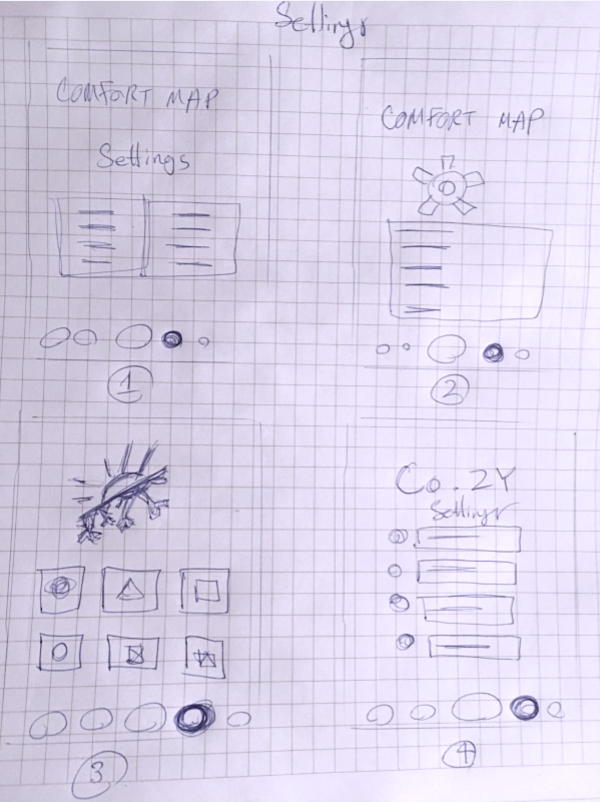 Settings
COMFORT MAP
Settings
1
COMFORT MAP
2
3
Co.2Y
Settings
4